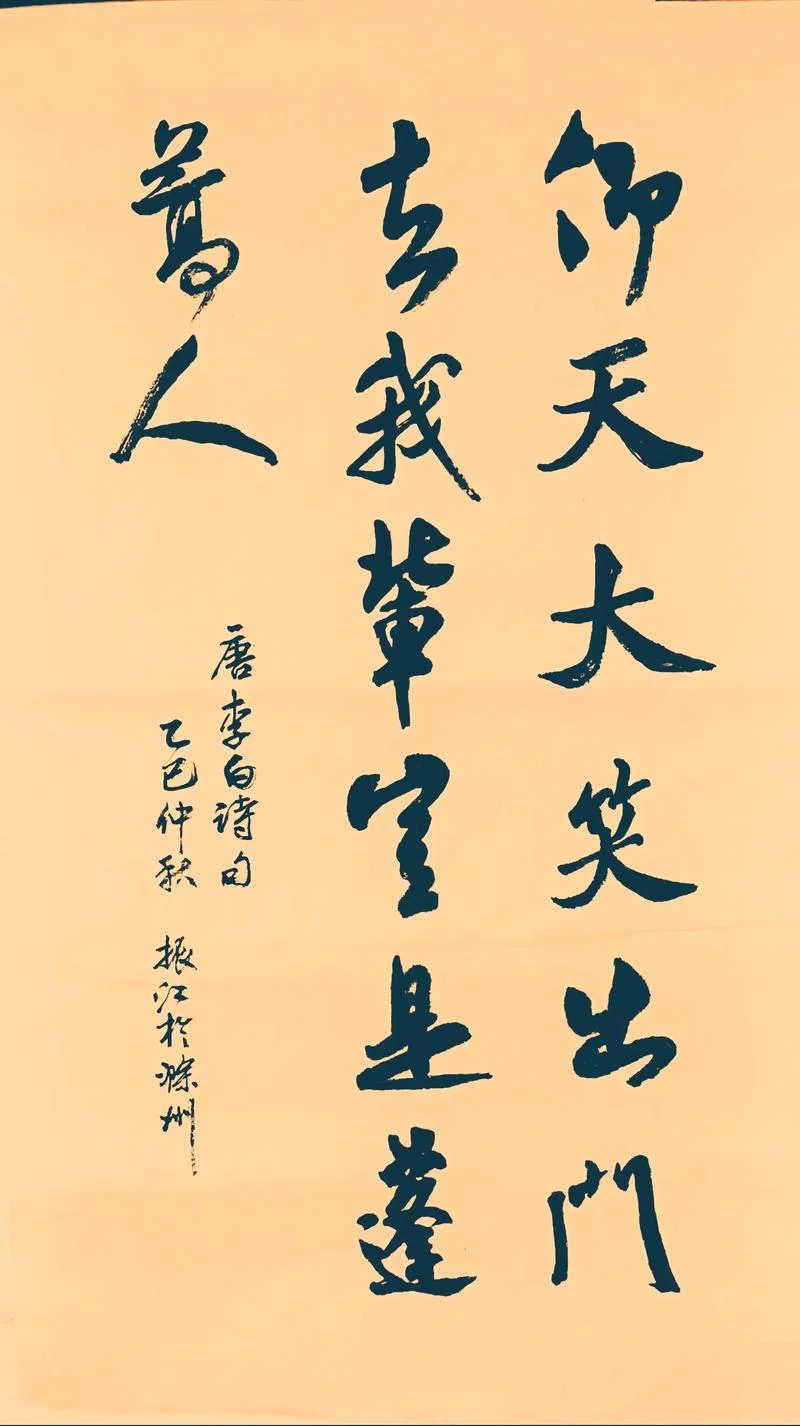 仰天大笑出門
去我輩豈是蓬
蒿人
唐李白詩句
乙巳仲秋 振江於滁州